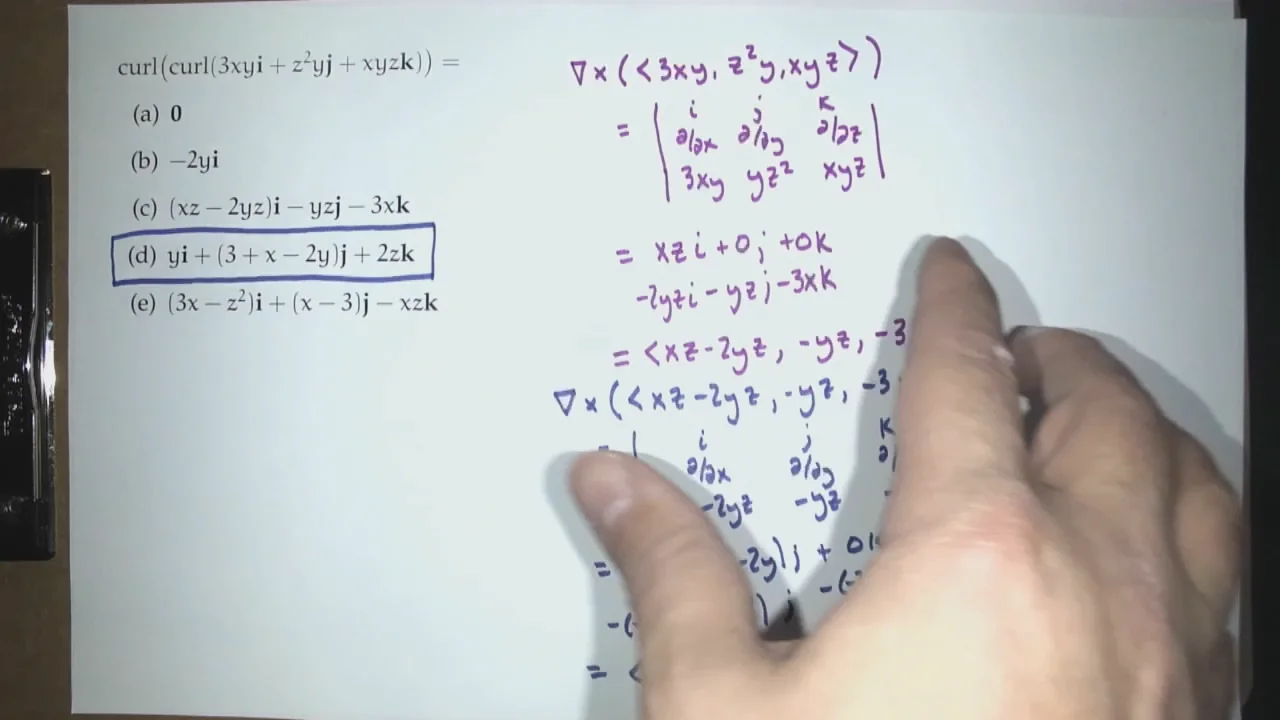 curl(curl(3xyi + z²yj + xyzk)) =
(a) 0
(b) −2yi
(c) (xz − 2yz)i − yzj − 3xk
(d) yi + (3 + x − 2y)j + 2zk
(e) (3x − z²)i + (x − 3)j − xzk
∇×(<3xy, z²y, xyz>)
= | i j k
∂/∂x ∂/∂y ∂/∂z
3xy yz² xyz |
= xz i + 0j + 0k
-2yzi - yzj - 3xk
= <xz - 2yz, -yz, -3
∇×(<xz - 2yz, -yz, -3
= | i j k
∂/∂x ∂/∂y
-2yz -yz
= -2y)j + 0
-( )j -(-
= <